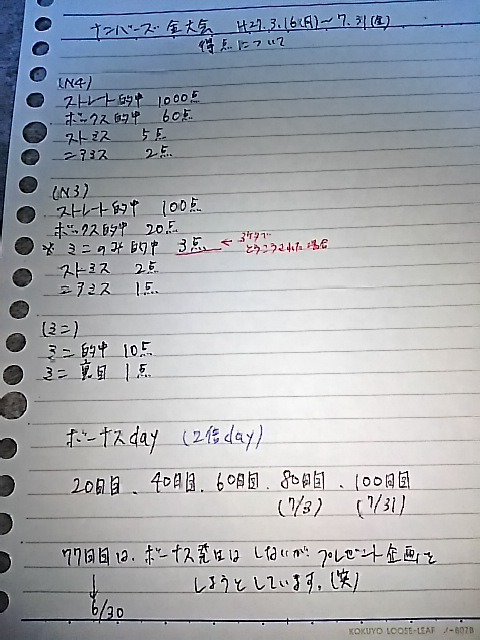 ナンバーズ 全大会 H27.3.16(月)～7.31(金)
得点について
(N4)
ストレート的中 1000点
ボックス的中 60点
ストミス 5点
ニアミス 2点
(N3)
ストレート的中 100点
ボックス的中 20点
※ ミニのみ的中 3点 ← 3ケタで
とうこうされた場合
ストミス 2点
ニアミス 1点
(ミニ)
ミニ的中 10点
ミニ裏目 1点
ボーナスday (2倍day)
20日目、40日目、60日目、80日目、100日目
(7/3) (7/31)
77日目は、ボーナス発日はしないが プレゼント企画を
しようとしています。(笑)
↓
6/30
KOKUYO LOOSE-LEAF ノ-807B